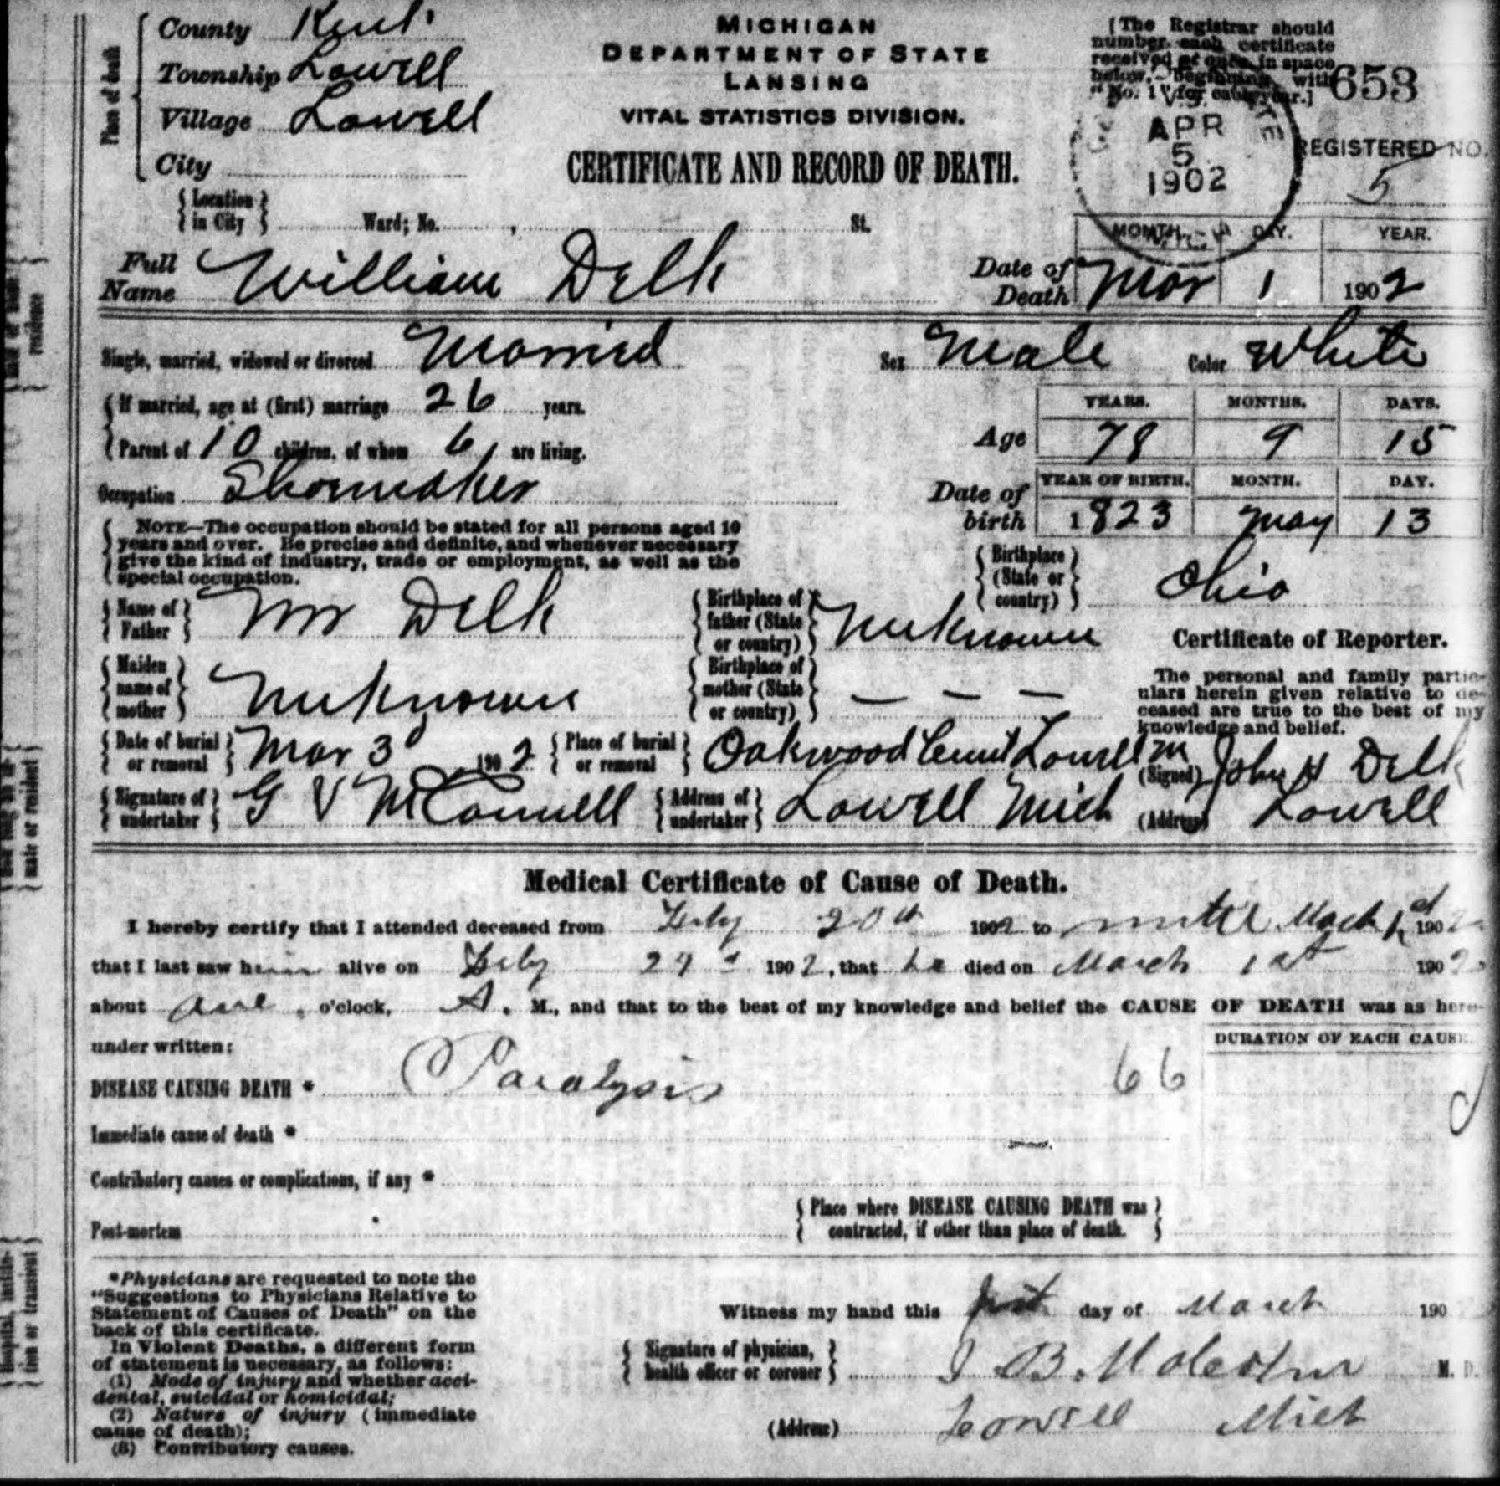 County Kent
Township Lowell
Village Lowell
City
Place of death
Location in City Ward; No. , St.
MICHIGAN
DEPARTMENT OF STATE
LANSING
VITAL STATISTICS DIVISION.
CERTIFICATE AND RECORD OF DEATH.
[The Registrar should
number each certificate
received at once in space
below, beginning with
"No. 1" for each year.]
653
APR
5
1902
REGISTERED NO.
5
Full Name William Delk
MONTH. DAY. YEAR.
Date of Death Mar 1 1902
Single, married, widowed or divorced Married Sex Male Color White
If married, age at (first) marriage 26 years.
Parent of 10 children, of whom 6 are living.
YEARS. MONTHS. DAYS.
Age 78 9 15
Occupation Shoemaker
YEAR OF BIRTH. MONTH. DAY.
Date of birth 1823 May 13
NOTE—The occupation should be stated for all persons aged 10
years and over. Be precise and definite, and whenever necessary
give the kind of industry, trade or employment, as well as the
special occupation.
Birthplace (State or country) Ohio
Name of Father Mr Delk
Birthplace of father (State or country) Unknown
Maiden name of mother Unknown
Birthplace of mother (State or country) — — —
Certificate of Reporter.
The personal and family partic-
ulars herein given relative to de-
ceased are true to the best of my
knowledge and belief.
Date of burial or removal Mar 3 1902 Place of burial or removal Oakwood Cemt Lowell M
(Signed) John H Delk
Signature of undertaker G V McConnell Address of undertaker Lowell Mich
(Address) Lowell
Medical Certificate of Cause of Death.
I hereby certify that I attended deceased from Feby 20th 1902 to until March 1st 1902
that I last saw him alive on Feby 190 2, that he died on March 1st 1902
about one o'clock, A. M., and that to the best of my knowledge and belief the CAUSE OF DEATH was as here-
under written:
DURATION OF EACH CAUSE.
DISEASE CAUSING DEATH * Paralysis 66
Immediate cause of death * —
Contributory causes or complications, if any *
Place where DISEASE CAUSING DEATH was
contracted, if other than place of death.
Post-mortem
*Physicians are requested to note the
"Suggestions to Physicians Relative to
Statement of Causes of Death" on the
back of this certificate.
In Violent Deaths, a different form
of statement is necessary, as follows:
(1) Mode of injury and whether acci-
dental, suicidal or homicidal;
(2) Nature of injury (immediate
cause of death);
(3) Contributory causes.
Witness my hand this day of March 190
Signature of physician, health officer or coroner B. M. D.
(Address) Lowell Mich